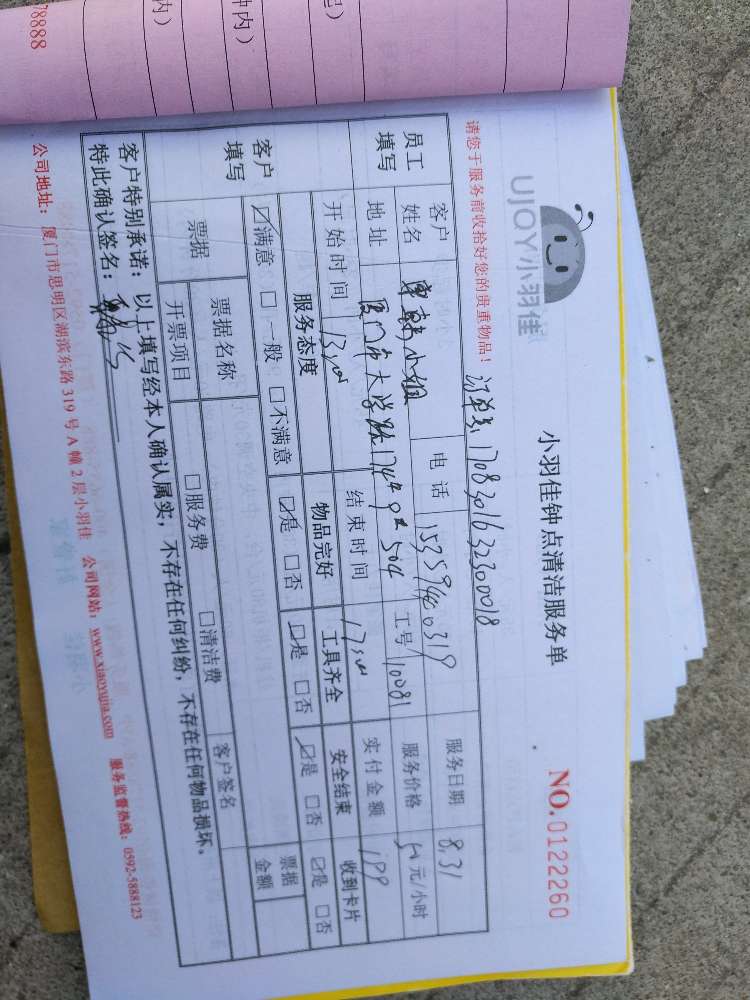 78888
钟内)
内)
起)
UJOY小羽佳
小羽佳钟点清洁服务单
NO.0122260
请您于服务前收拾好您的贵重物品!
订单号1708301632300018
员工填写
客户姓名
小姐
电话
15359460319
服务日期
8.31
地址
厦门市大学路174#
504
工号
10081
服务价格
元/小时
开始时间
13:00
结束时间
17:00
实付金额
199
客户填写
服务态度
物品完好
工具齐全
安全结束
收到卡片
☑满意 □一般 □不满意
☑是 □否
☑是 □否
☑是 □否
☑是 □否
票据
票据名称
客户签名
票据金额
开票项目
□服务费
□清洁费
客户特别承诺:以上填写经本人确认属实,不存在任何纠纷,不存在任何物品损坏。
特此确认签名:
公司地址:厦门市思明区湖滨东路319号A幢2层小羽佳 公司网站:www.xiaoyujia.com 服务监督热线:0592-5888123